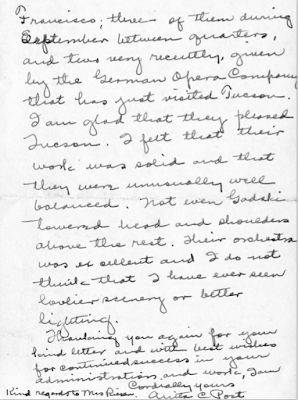 Francisco; three of them during
September between quarters,
and two very recently, given
by the German Opera Company
that has just visited Tucson.
I am glad that they pleased
Tucson. I felt that their
work was solid and that
they were unusually well
balanced. Not even Gadski
towered head and shoulders
above the rest. Their orchestra
was excellent and I do not
think that I have ever seen
lovlier scenery or better
lighting.
Thanking you again for your
kind letter and with best wishes
for continued success in your
administration and work, I am
Cordially yours
Kind regards to Mrs. Anita C. Post